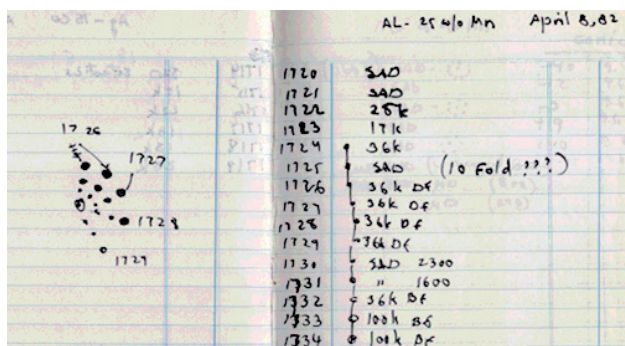 AL- 25 w/o Mn April 8, 82
1720 SAD
1721 SAD
1722 25k
1723 17k
1724 36k
1725 SAD (10 Fold ???)
1726 36k Df
1727 36k Df
1728 36k Df
1729 36k Df
1730 SAD 2300
1731 " 1600
1732 36k Bf
1733 100k Bf
1734 100k Bf
1726
1727
1728
1729